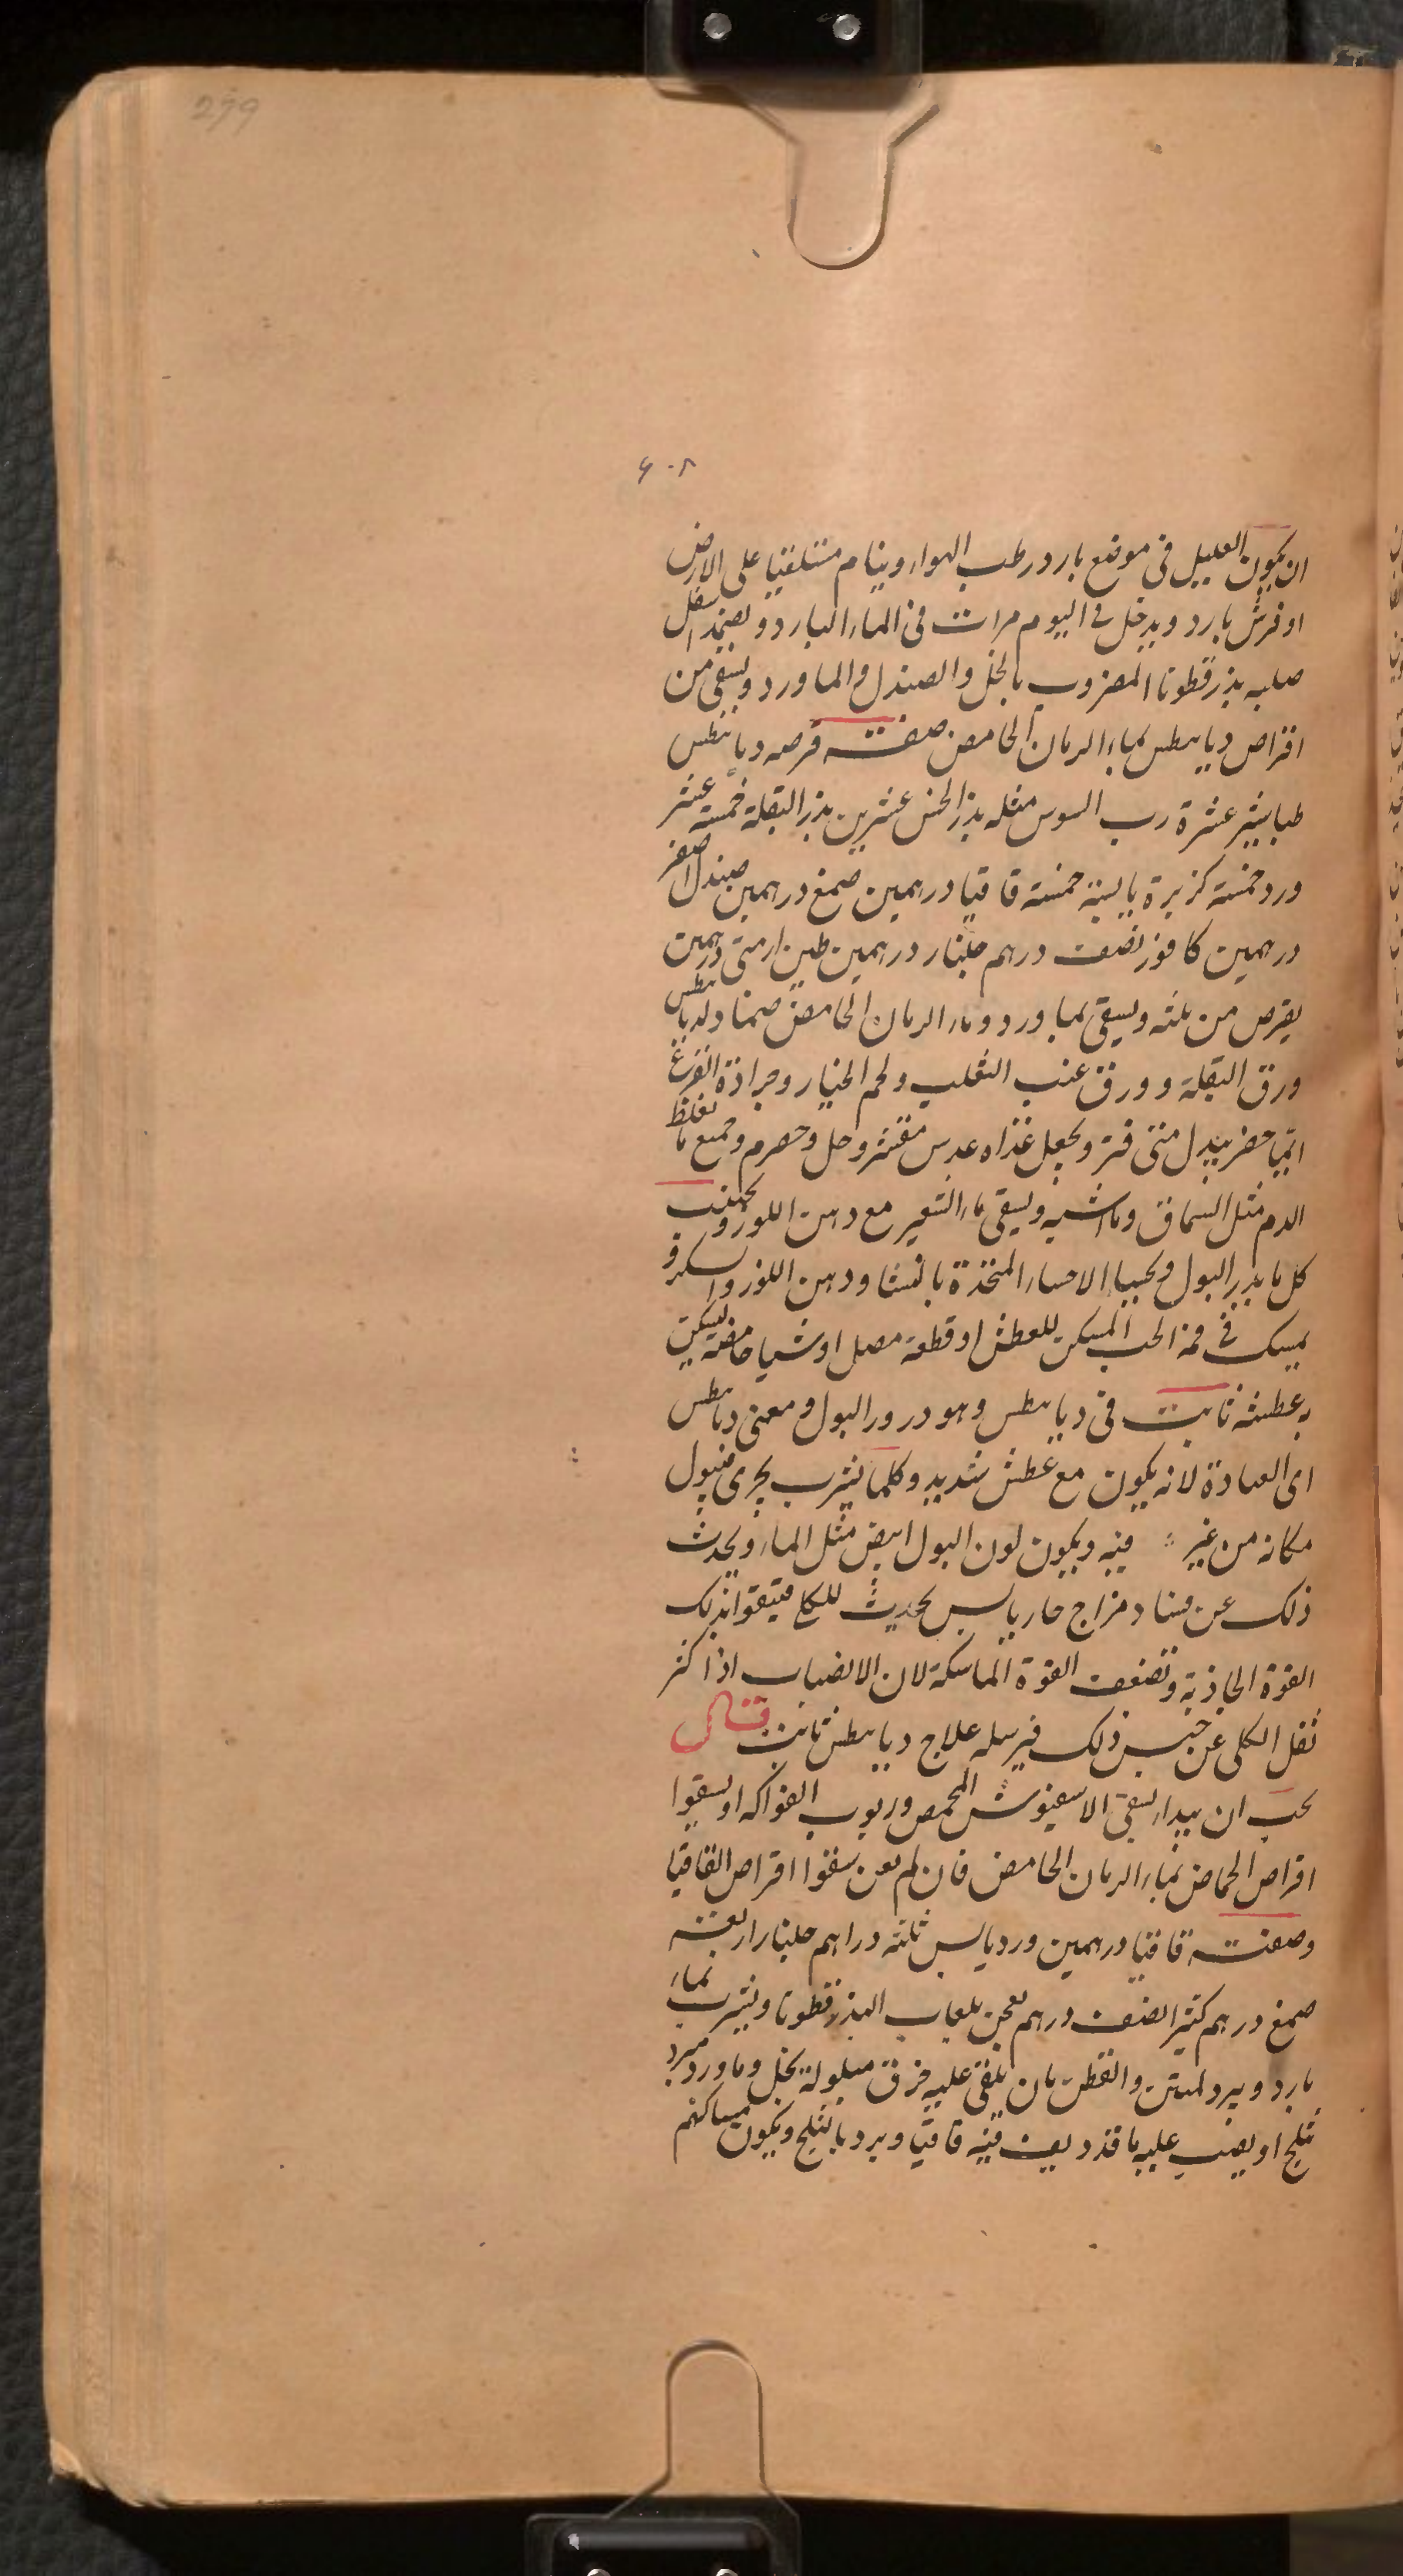 279
۶۰۸
ان يكون العليل فى موضع بارد رطب الهواء وينام مستلقيا على الارض
او فرش بارد ويدخل فى اليوم مرات فى الماء البارد ويضمد اسفل
صلبه بذرقطونا المضروب بالخل والصندل والماورد ويسقى من
اقراص ديابيطس بماء الرمان الحامض صفته قرصه ديابيطس
طباشير عشرة رب السوس مثله بذر الخس عشرين بذر البقلة خمسة عشر
ورد خمسة كزبرة يابسة خمسة قاقيا درهمين صمغ درهمين صندل اصفر
درهمين كافور نصف درهم جلنار درهمين طين ارمنى درهمين
يقرص من ثلثه ويسقى بماورد وماء الرمان الحامض ضماد لديابيطس
ورق البقلة وورق عنب الثعلب ولحم الخيار وجرادة القرع
ايها حضر يبدل متى فتر ويجعل غذاه عدس مقشر وخل وحصرم وجميع ما يغلظ
الدم مثل السماق وما اشبه ويسقى ماء الشعير مع دهن اللوز ويجتنب
كل ما يدر البول ويحسا الاحساء المتخذة بالنشا ودهن اللوز والسكر و
يمسك فى فمه الحب المسكن للعطش او قطعة مصل او شيا حامضة ليسكن
به عطشه ثابت فى ديابيطس وهو درور البول ومعنى ديابيطس
اى العبادة لانه يكون مع عطش شديد وكلما يشرب يجرى فيبول
مكانه من غير فيه ويكون لون البول ابيض مثل الماء ويحدث
ذلك عن فساد مزاج حار يابس يحدث للكلى فيتقوا بذلك
القوة الجاذبة وتضعف القوة الماسكة لان الانصباب اذا كثر
ثقل الكلى عن حبس ذلك فيرسله علاج ديابيطس ثابت قال
يجب ان يبدا بسقى الاسفيوش المحمص وربوب الفواكه او يسقوا
اقراص الحماض بماء الرمان الحامض فان لم سقوا اقراص القاقيا
وصفته قاقيا درهمين ورد يابس ثلثه دراهم جلنار اربعة
صمغ درهم كثيرا نصف درهم يعجن بلعاب البذرقطونا ويشرب بماء
بارد ويبرد المتن والقطن بان يلقى عليه خرق مبلولة بخل وماورد مبرد
بثلج او يصب عليه ما قد ديف فيه قاقيا وبرد بالثلج ويكون مساكنهم